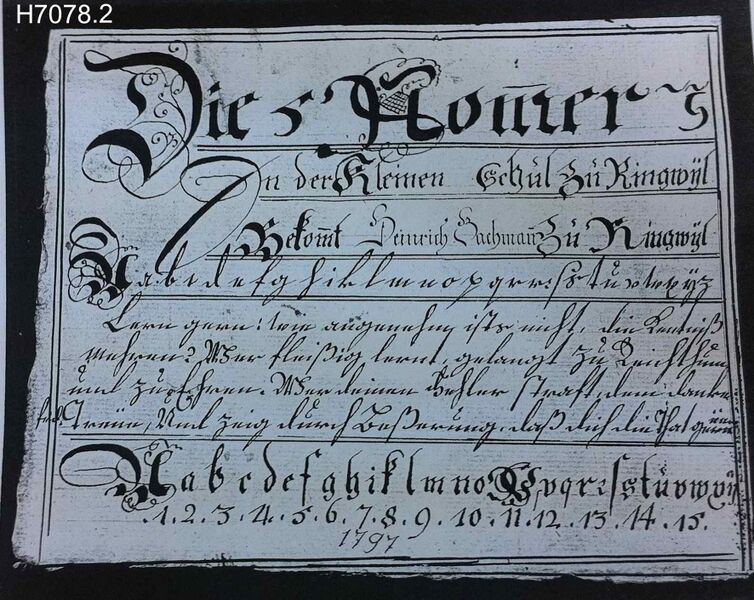 H7078.2
Die 5 Nom̅er 5
In der Kleinen Schul Zu Ringwÿl
Bekom̅t Heinrich Bachman̅ Zu Ringwÿl
A a b c d e f g h i k l m n o p q r r s ſs t u v w x ÿ z
Lern gern! wie angenehm ists nicht, die Kentniß
mehren? Wer fleißig lernt, gelangt zu Reichthum
und zu Ehren. Wer deinen Fehler straft, dem danke
für Treüe, Und zeig durch Beßerung, daß dich die That gereüe
A a b c d e f g h i k l m n o P p q r r s ſs t u v w x ÿ
.1.2.3.4.5.6.7.8.9.10.11.12.13.14.15.
1797